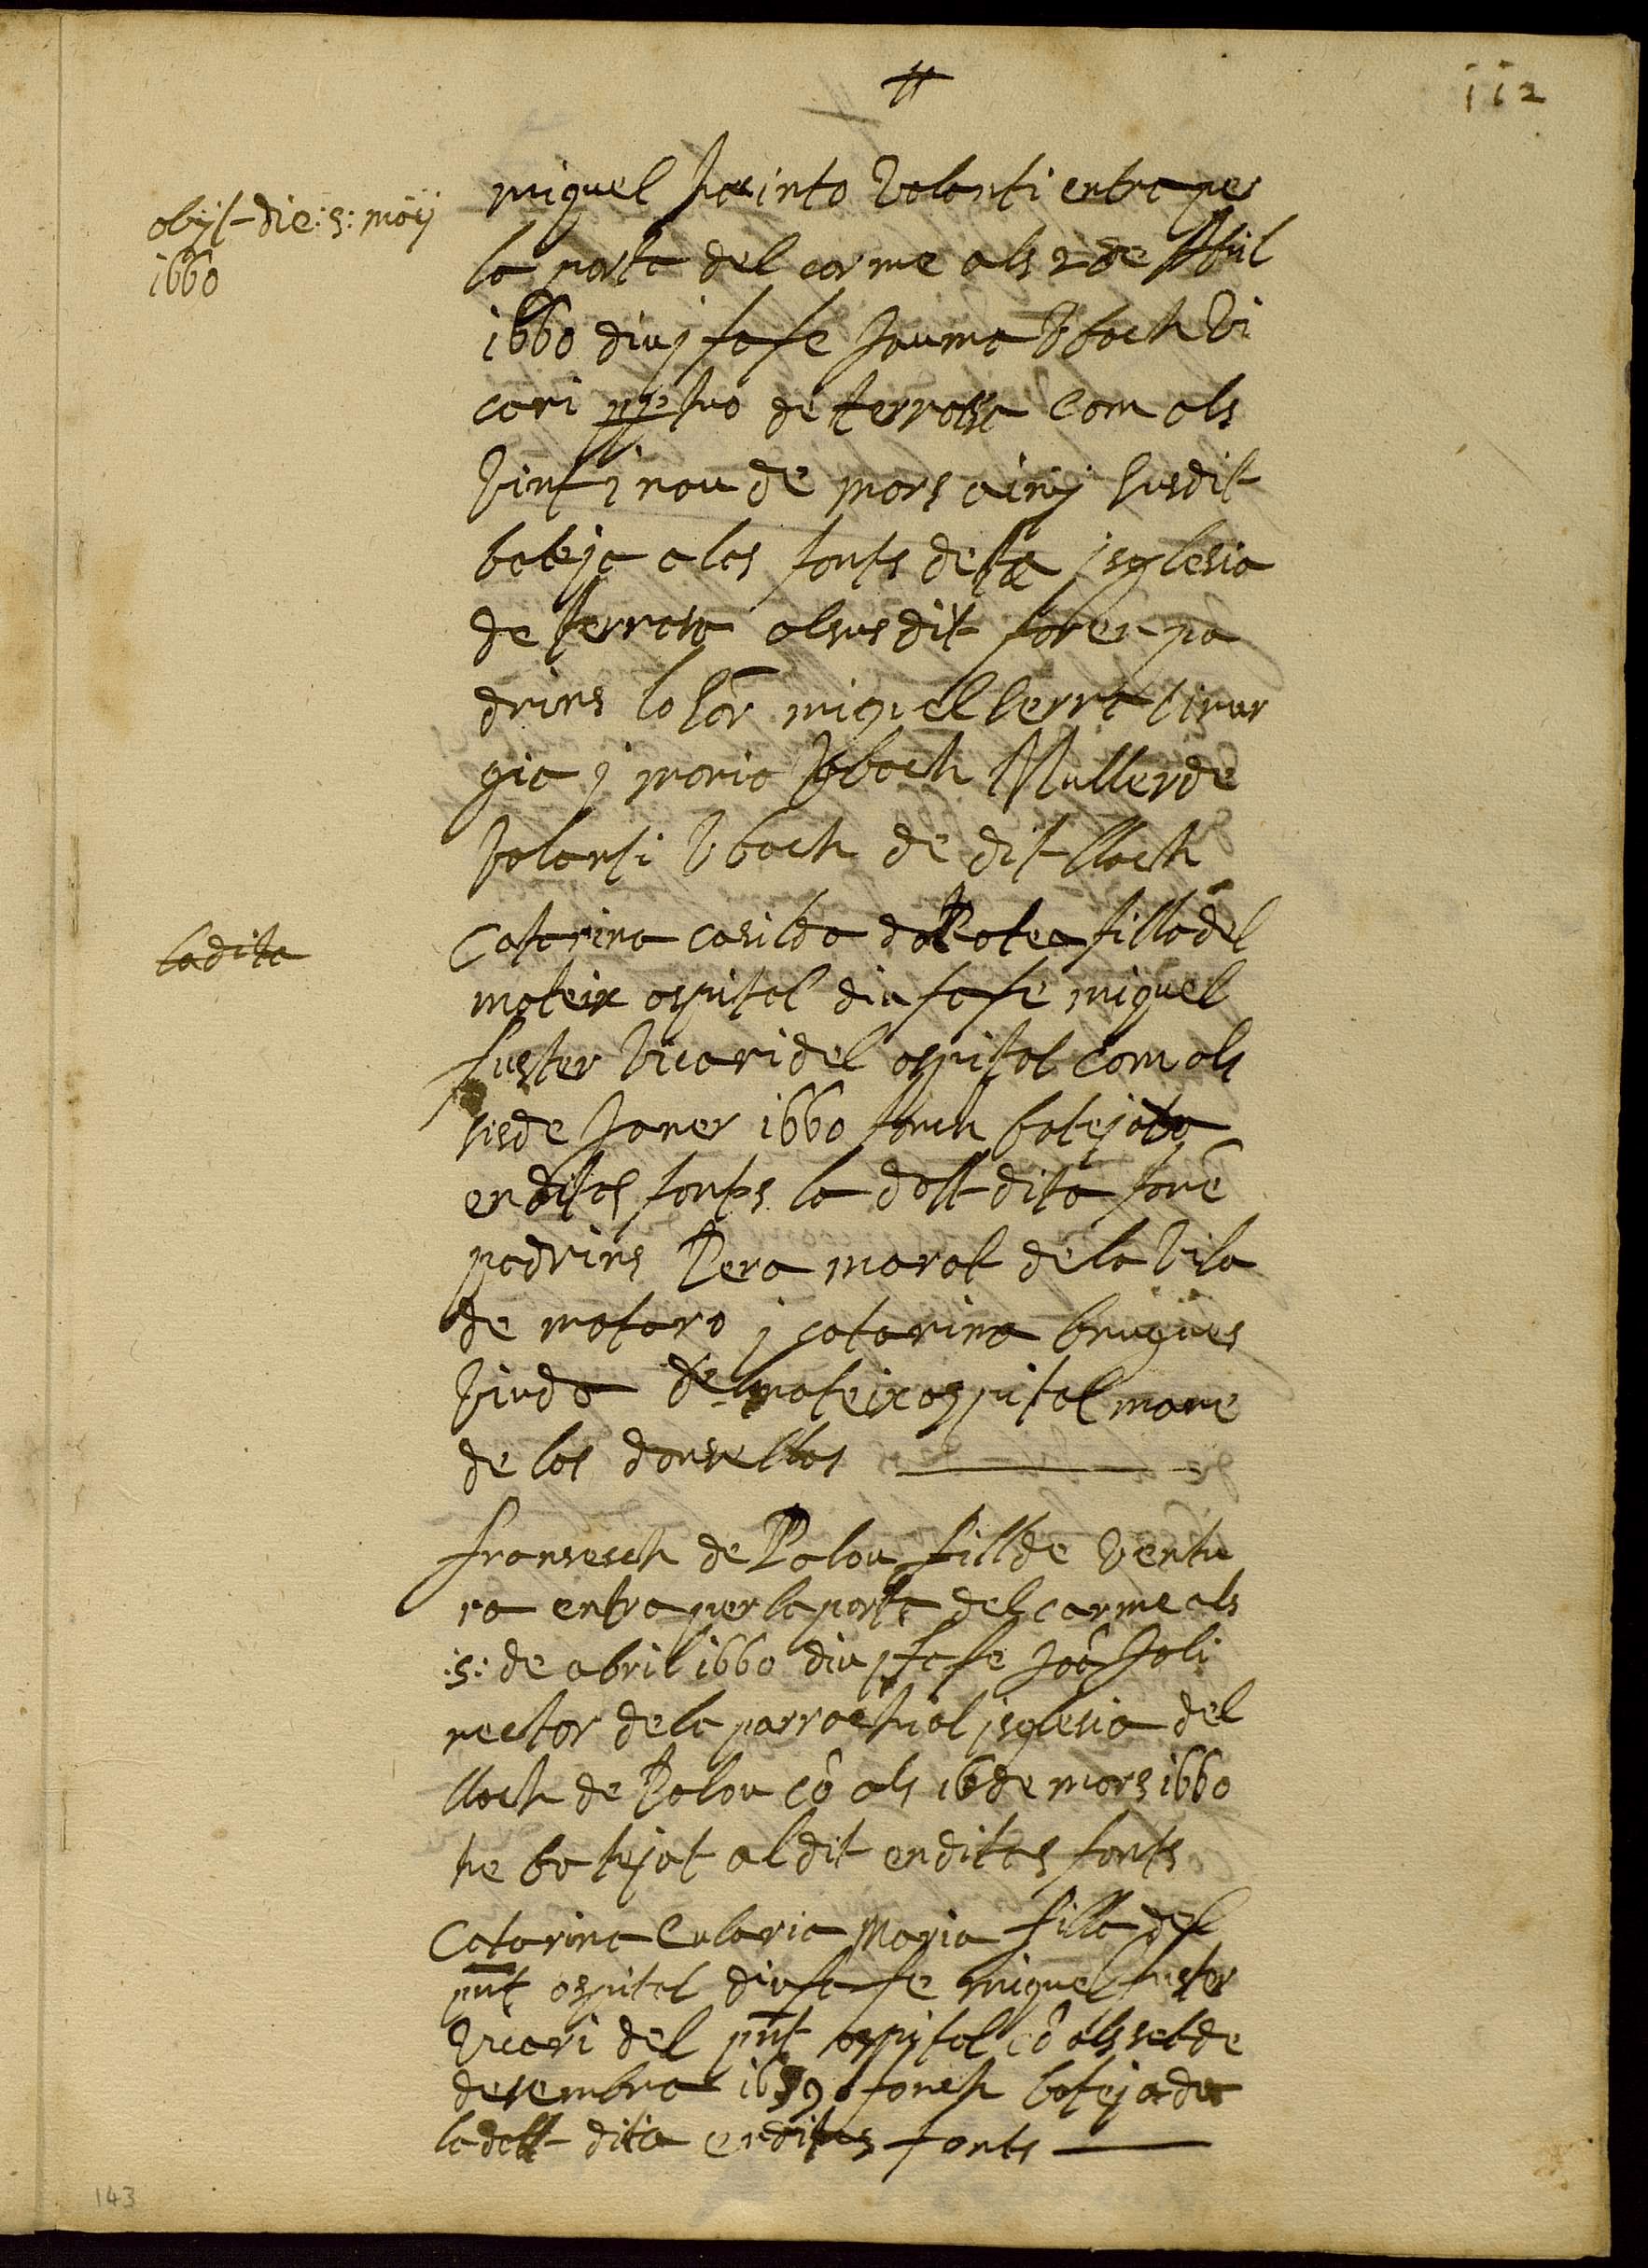 112
obijt die :5: maij
1660
miquel Jacinto Valanti entra per
la porta del carme als 2 de Abril
1660 diu j fa fe Jauma Vbach Vi
cari ppetuo de terrassa com als
Vint i nou de mars ainy susdit
bateja a las fonts de ssa isglesia
de terrasa al susdit foren pa
drins lo Sor miquel serra sirur
gia j maria Vbach Muller de
Valanti Vbach de dit lloch
la dita
Catarina casilda dorotea filla del
mateix ospital diu fa fe miquel
fuster Vicari del ospital com als
sis de Janer 1660 fonch batejada
en ditas fonts la dalt dita forẽ
padrins Pera marot de la Vila
de mataro j catarina brugues
Viuda del mateix ospital mare
de las donsellas
fransesch de Palou fill de Ventu
ra entra per la porta del carme als
:5: de abril 1660 diu j fa fe Joã Joli
rector de la parrochial isglesia del
lloch de Palou cõ als 16 de mars 1660
he batejat al dit en ditas fonts
Catarina Eularia Maria filla del
pnt ospital diu fa fe miquel fuster
Vicari del pnt ospital cõ als set de
desembra 1659 fonch batejada
la dalt dita en ditas fonts
143